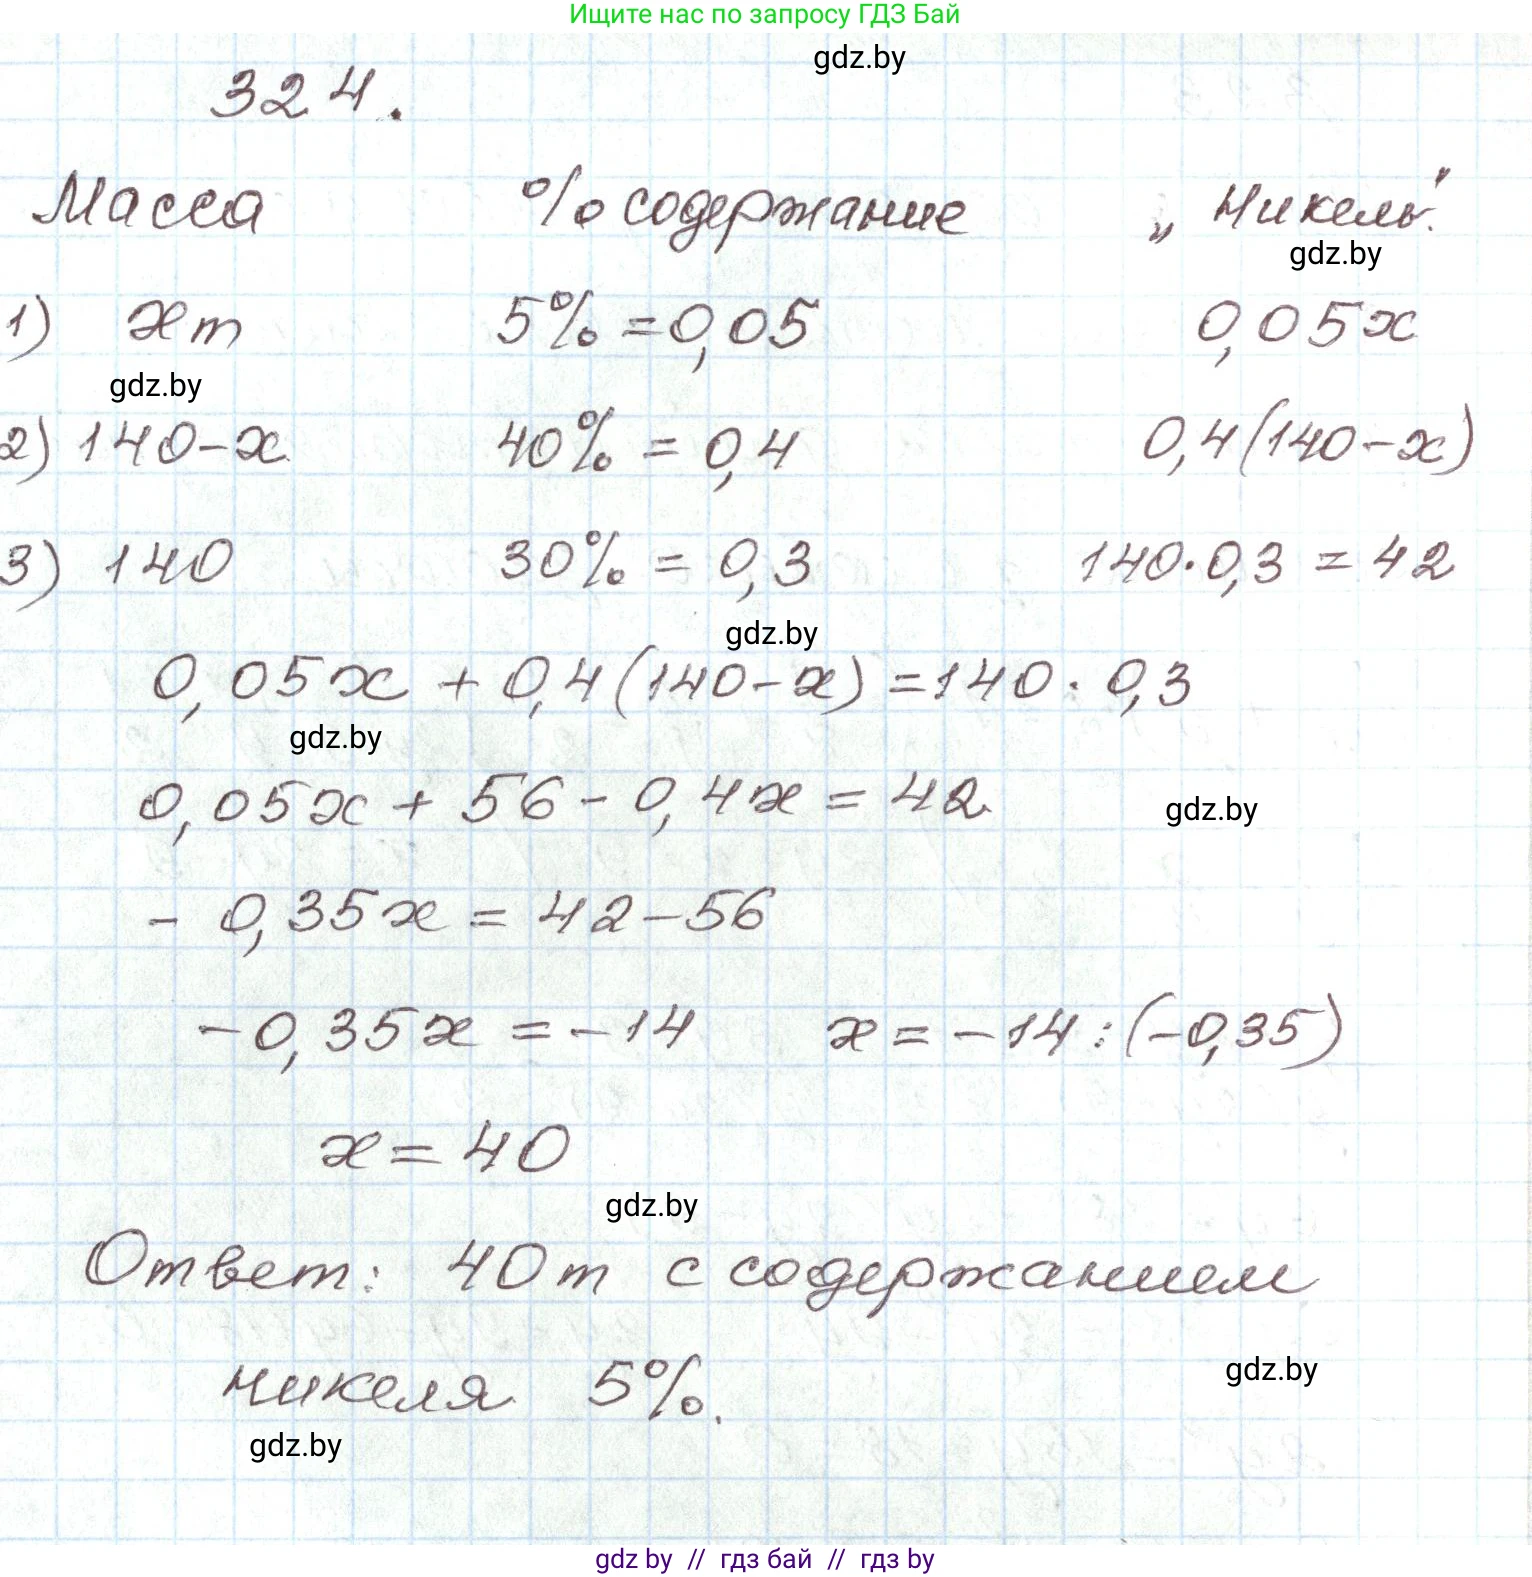 Ищите нас по запросу ГДЗ Бай
gdz.by
324.
Масса % содержание „Никель".
gdz.by
1) х т 5% = 0,05 0,05х
gdz.by
2) 140-х 40% = 0,4 0,4(140-х)
3) 140 30% = 0,3 140·0,3 = 42
gdz.by
0,05х + 0,4(140-х) = 140·0,3
gdz.by
0,05х + 56 - 0,4х = 42
gdz.by
- 0,35х = 42-56
-0,35х = -14 х = -14:(-0,35)
х = 40
gdz.by
Ответ: 40 т с содержанием
никеля 5%.
gdz.by
gdz.by
gdz by // гдз бай // гдз by